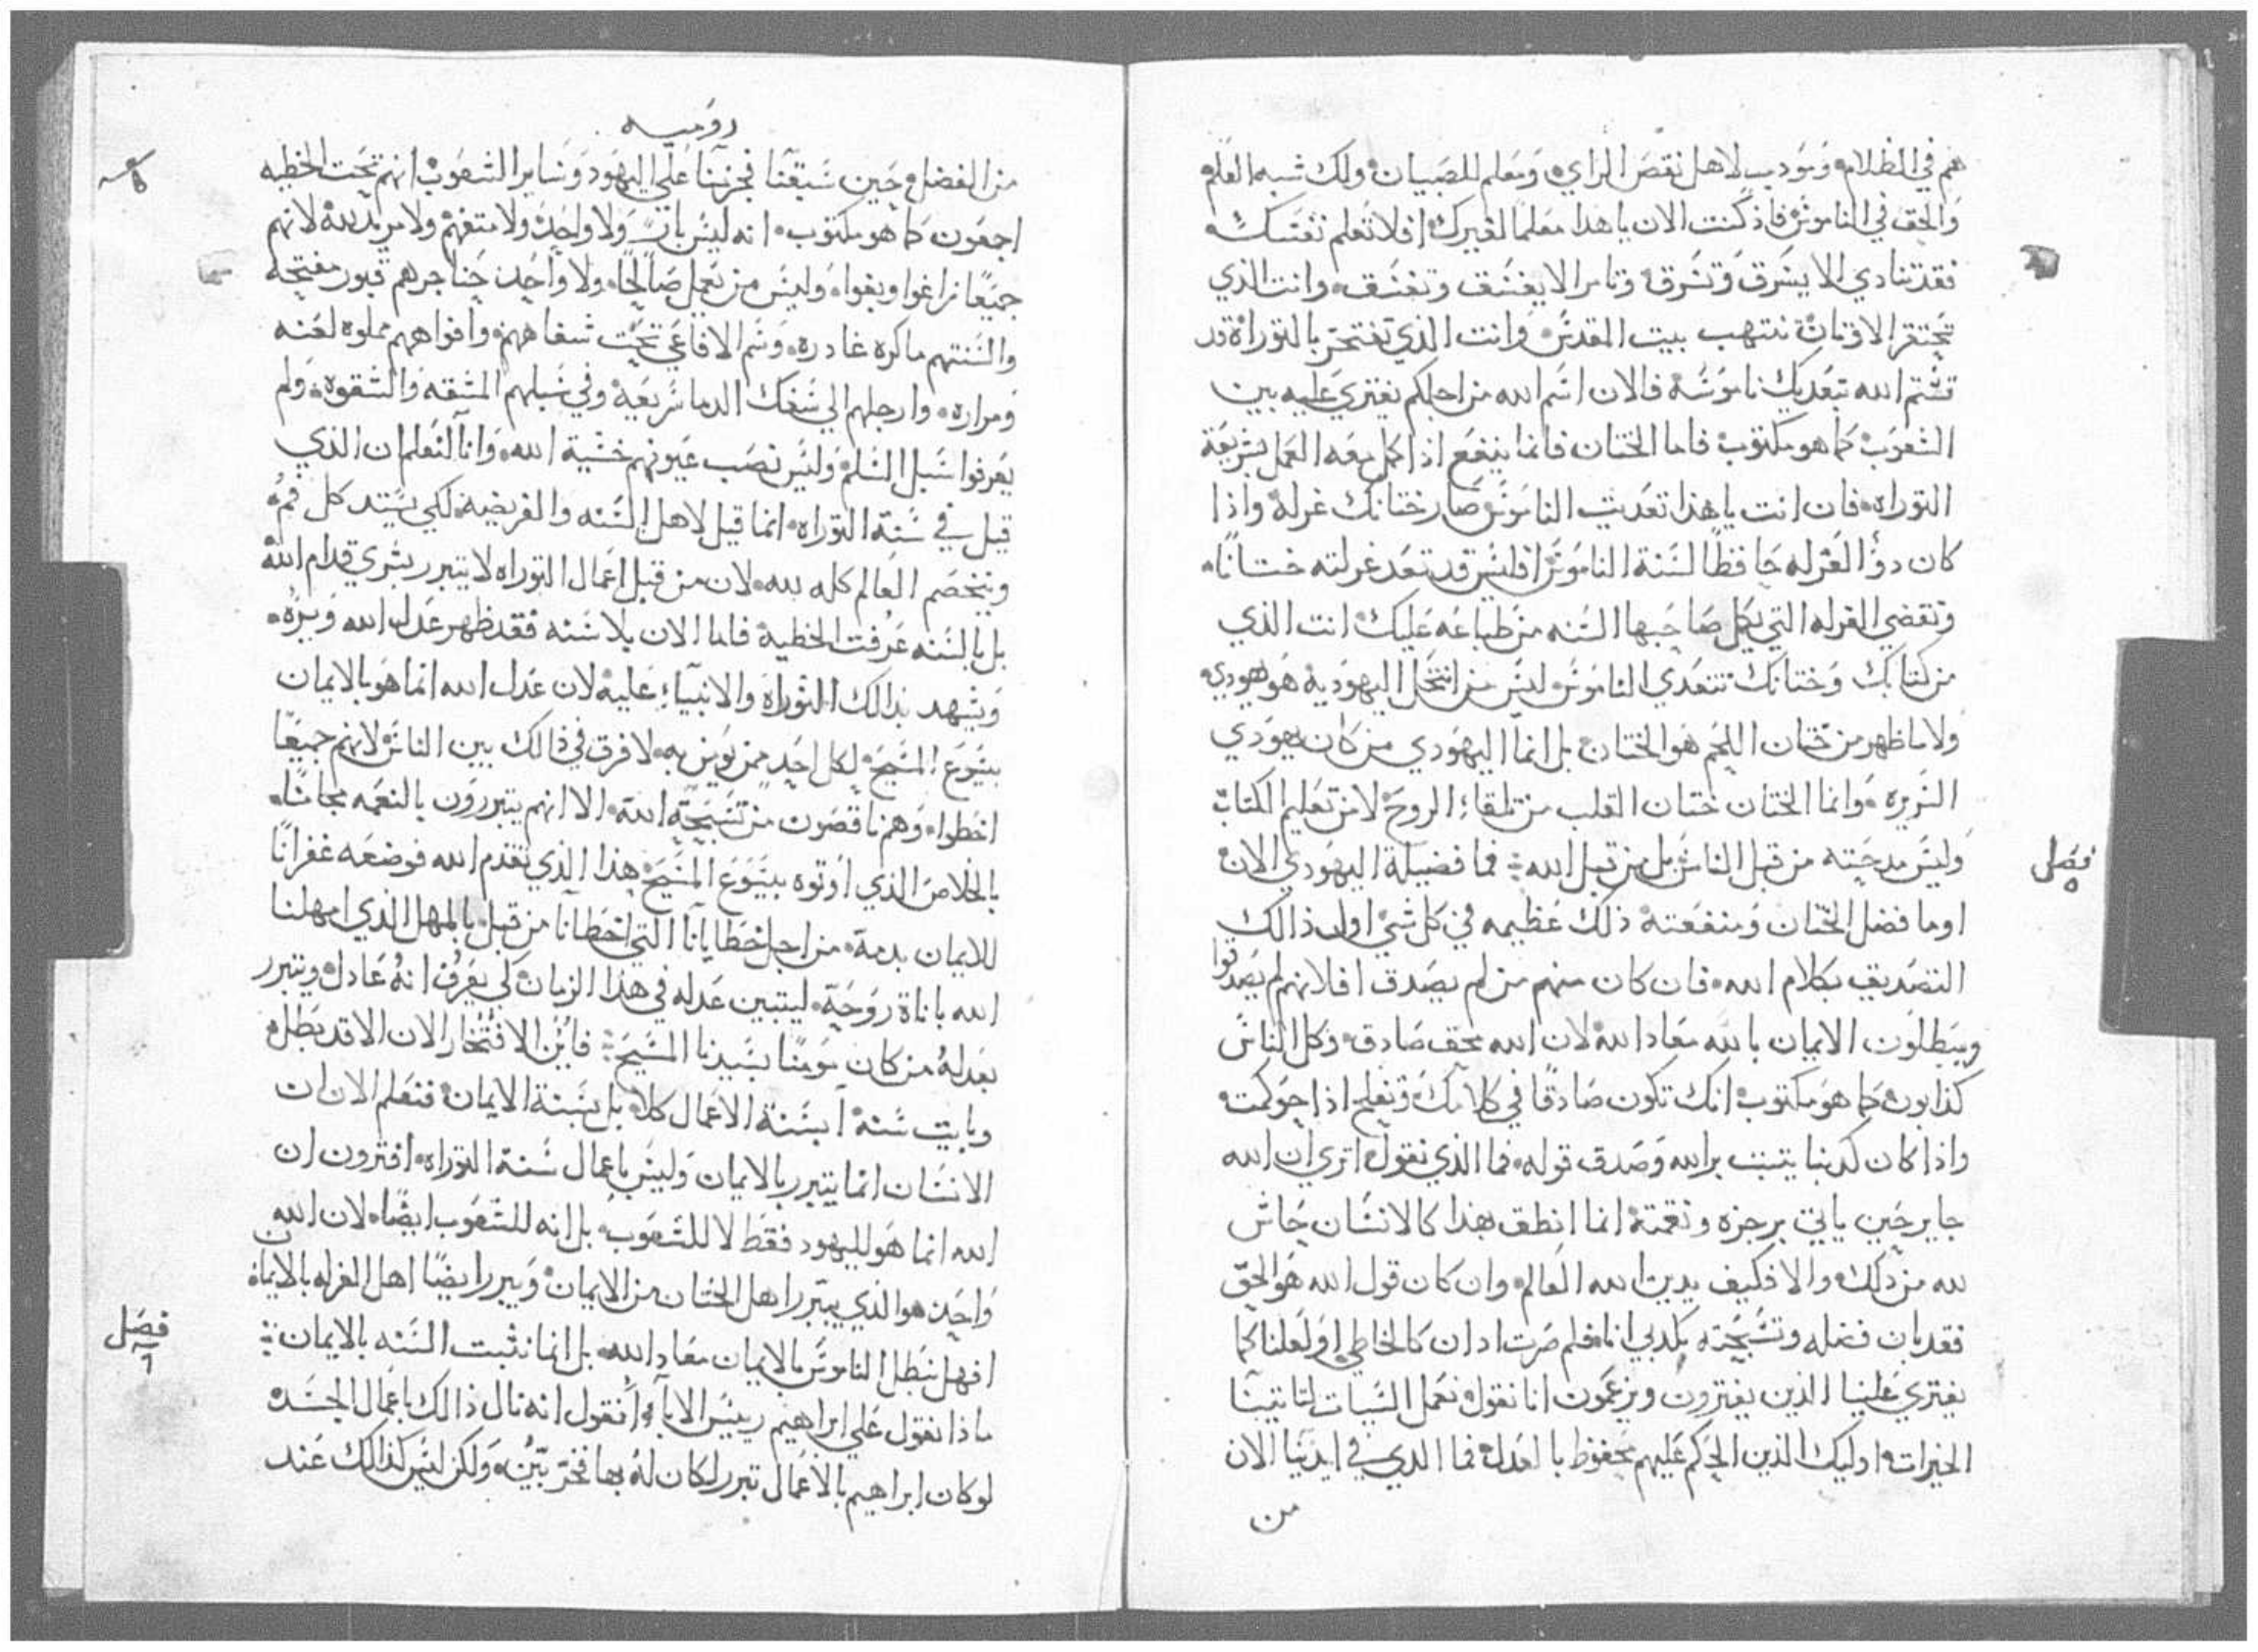 هم في الظلام ومودب لاهل نقص الراي ومعلم للصبيان ولك شبه العلم
والحق في الناموس فاذ كنت الان يا هذا معلما لغيرك افلا تعلم نفسك
فقد تنادي الا يسرق وتسرق وتامر الا يفسق وتفسق وانت الذي
تحتقر الاوثان تنتهب بيت المقدس وانت الذي تفتخر بالتوراة قد
تشتم الله بتعديك ناموسه فالان اسم الله من اجلكم يفتري عليه بين
الشعوب كما هو مكتوب فاما الختان فانما ينفع اذا كمل معه العمل بشريعة
التوراه فان انت يا هذا تعديت الناموس صار ختانك غرله واذا
كان ذو الغرله حافظا لسنة الناموس افليس قد تعد غرلته ختانا
وتقضي الغرله التي يكمل صاحبها السنه من طباعه عليك انت الذي
من كتابك وختانك تتعدي الناموس ليس من انتحل اليهوديه هو يهودي
ولا ما ظهر من ختان اللحم هو الختان بل انما اليهودي من كان يهودي
السريره وانما الختان ختان القلب من تلقاء الروح لا من تعليم الكتاب
وليس مدحته من قبل الناس بل من قبل الله فما فضيلة اليهودي الان
فصل
٥
او ما فضل الختان ومنفعته ذلك عظيمه في كل شي اول ذالك
التصديق بكلام الله فان كان منهم من لم يصدق افلانهم لم يصدقوا
ويبطلون الايمان بالله معاد الله لان الله محق صادق وكل الناس
كذابون كما هو مكتوب انك تكون صادقا في كلامك وتغلب اذا حوكمت
واذا كان كدبنا يتبت بر الله وصدق قوله فما الذي نقول اتري ان الله
جاير حين ياتي برجزه ونقمته انما انطق بهذا كالانسان حاش
لله من ذلك والا فكيف يدين الله العالم وان كان قول الله هو الحق
فقد بان فضله وتسبحته بكدبي انا فلم صرت ادان كالخاطي او لعلنا كما
يفتري علينا الذين يفترون ويزعمون انا نقول نعمل السيات لتاتينا
الخيرات اوليك الذين الحكم عليهم محفوظ بالعدل فما الدي في ايدينا الان
من
روميه
من الفضل حين سبقنا فجزمنا علي اليهود وساير الشعوب انهم تحت الخطيه
اجمعون كما هو مكتوب انه ليس بار ولا واحد ولا متفهم ولا مريد لله لانهم
جميعا زاغوا وبغوا وليس من يعمل صالحا ولا واحد حناجرهم قبور مفتحه
والسنتهم ماكره غادره وسم الافاعي تحت شفاههم وافواههم مملوه لعنه
ومراره وارجلهم الي سفك الدما سريعه وفي سبلهم المشقه والشقوه ولم
يعرفوا سبل السلم وليس نصب عيونهم خشية الله وانا لنعلم ان الذي
قيل في سنة التوراه انما قيل لاهل السنه والفريضه لكي يستد كل فم
ويتخصم العالم كله لله لان من قبل اعمال التوراه لا يتبرر بشري قدام الله
بل بالسنه عرفت الخطيه فاما الان بلا سنه فقد ظهر عدل الله وبره
ويشهد بذالك التوراه والانبياء عليه لان عدل الله انما هو بالايمان
بيسوع المسيح لكل احد ممن يومن به لا فرق في ذالك بين الناس لانهم جميعا
اخطوا وهم ناقصون من تسبحة الله الا انهم يتبررون بالنعمه مجانا
بالخلاص الذي اوتوه بيسوع المسيح هذا الذي تقدم الله فوضعه غفرانا
للايمان بدمه من اجل خطايانا التي اخطانا من قبل بالمهل الذي امهلنا
الله باناة روحه ليتبين عدله في هذا الزمان لكي يعرف انه عادل ويتبرر
بعدله من كان مومنا بسيدنا المسيح فاين الافتخار الان الا قد بطل
وبايت سنه ابسنة الاعمال كلا بل بسنة الايمان فنعلم الان ان
الانسان انما يتبرر بالايمان وليس باعمال سنة التوراه افترون ان
الله انما هو لليهود فقط لا للشعوب بل انه للشعوب ايضا لان الله
واحد هو الذي يبرر اهل الختان من الايمان ويبرر ايضا اهل الغرله بالايمان
افهل نبطل الناموس بالايمان معاد الله بل انما نثبت السنه بالايمان
فصل
٦
ماذا نقول علي ابراهيم رييس الاباء انقول انه نال ذالك باعمال الجسد
لو كان ابراهيم بالاعمال تبرر لكان له بها فخر بين ولكن ليس كذالك عند